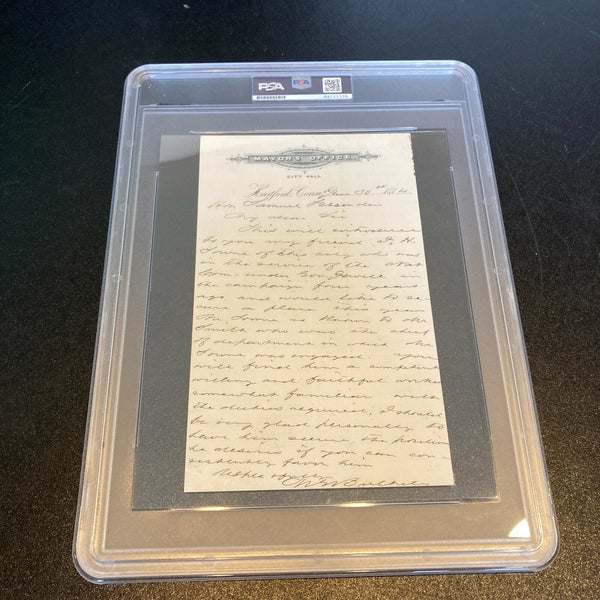 PSA PSA
MAYOR'S OFFICE
CITY HALL
Hartford, Conn., June 30th 1884
Hon Samuel Fessenden
My dear Sir
This will introduce
to you my friend F. H.
Towne of this city who was
in the service of the Nat
Com. under Gov. Jewell in
the campaign four years
ago, and would like to se-
cure a place this year
Mr Towne is known to Mr
Smith who was the chief
of department in which Mr
Towne was engaged. You
will find him a competent
willing and faithful worker
somewhat familiar with
the duties required. I should
be very glad personally to
have him secure the position
he desires if you can con-
sistently favor him
Respectfully
M G Bulkeley